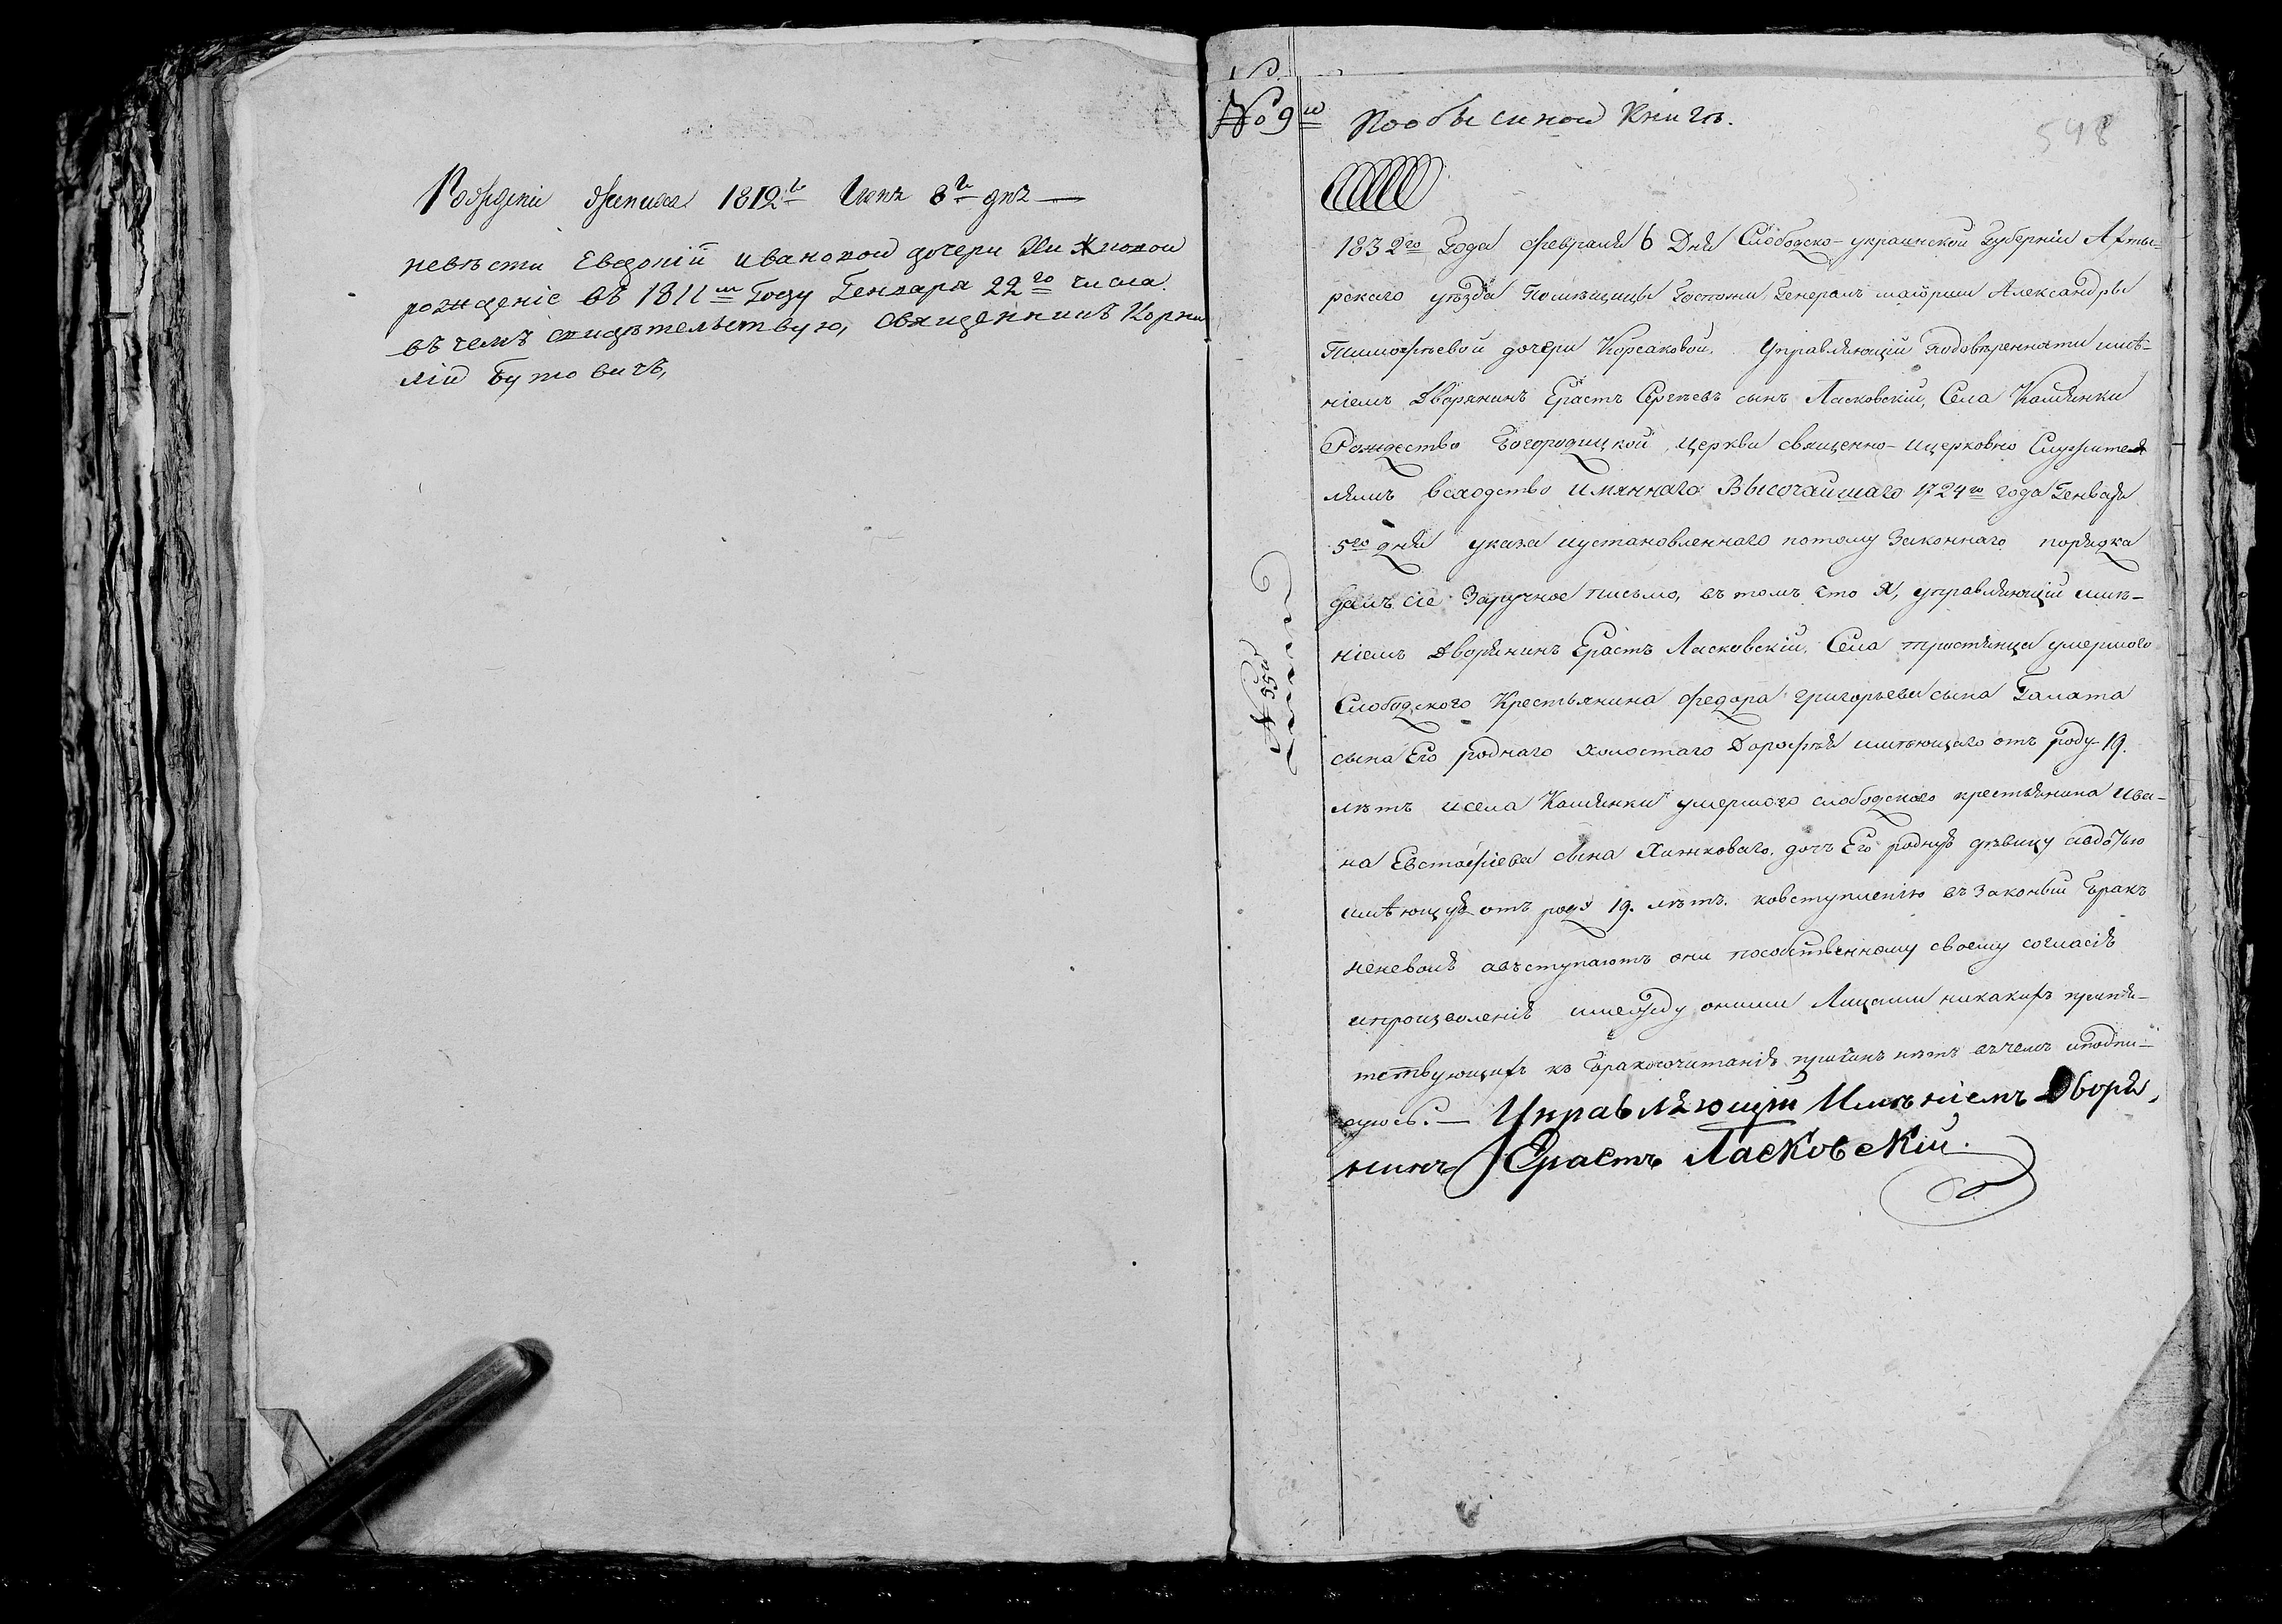 Рожденіе Жениха 1812го Іюня 8го дня —
невѣсти Евдокіи ивановой дочери Хижковой
рожденіе въ 1811мъ Году Генваря 22го числа.
въ чемъ свидѣтельствую, священникъ Корни
лій Бутовичъ,
№ 9й По обыскной Книгѣ.
548
1832го Года февраля 6 Дня Слободско-украинской Губерніи Ахты-
рскаго уѣзда Помѣщицы Госпожи Генералъ маіорши Александры
Тимофѣевой дочери Корсаковой, Управляющій подовѣренности имѣ-
ніемъ Дворянинъ Ерастъ Сергѣевъ сынъ Ласковскій, Села Каменки
Рождество Богородицкой церкви священно-ицерковно Служите
лямъ всходство имяннаго Высочайшаго 1724го года Генваря
5го дня указа иустановленнаго потому Законнаго порядка
далъ сіе Заручное письмо, въ томъ что Я, управляющій имѣ-
ніемъ Дворянинъ Ерастъ Ласковскій, Села тростянца умершого
Слободского Крестьянина федора григорьева сына Гамата
сына Его роднаго холостаго Дорофѣя имѣющаго отъ роду 19.
лѣтъ исела Каменки умершого слободского крестьянина Ива-
на Евстафіева сына Хижковаго, дочь Его родную дѣвицу
имѣющую отъ роду 19. лѣтъ. ковступленію въ Законый бракъ
неневолѣ авступаютъ они пособственному своему согласію
ипроизволенію имежду оними Лицами никакихъ препя-
тствующихъ къ бракосочитанію причинъ нѣтъ въчемъ иподпи-
суюсь. — Управляющій Имѣніемъ Дворя,
нинъ Ерастъ Ласковскій.